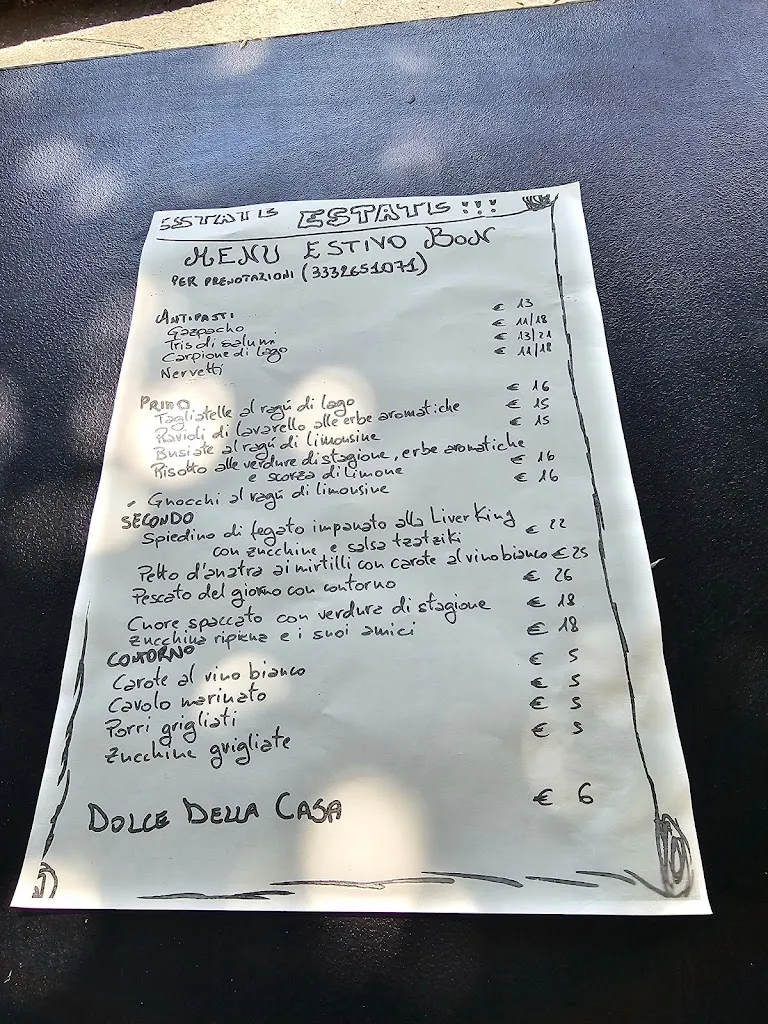 ESTATE ESTATE !!!
MENU ESTIVO BON
PER PRENOTAZIONI (3332651071)
ANTIPASTI
Gazpacho € 13
Tris di salumi € 11/18
Carpione di lago € 13/21
Nervetti € 11/18
PRIMO
Tagliatelle al ragú di lago € 16
Ravioli di lavarello alle erbe aromatiche € 15
Busiate al ragú di limousine € 15
Risotto alle verdure di stagione, erbe aromatiche
e scorza di limone € 16
- Gnocchi al ragú di limousine € 16
SECONDO
Spiedino di fegato impanato alla Liver King
con zucchine e salsa tzatziki € 22
Petto d'anatra ai mirtilli con carote al vino bianco € 25
Pescato del giorno con contorno € 26
Cuore spaccato con verdure di stagione € 18
Zucchina ripiena e i suoi amici € 18
CONTORNO
Carote al vino bianco € 5
Cavolo marinato € 5
Porri grigliati € 5
Zucchine grigliate € 5
DOLCE DELLA CASA € 6